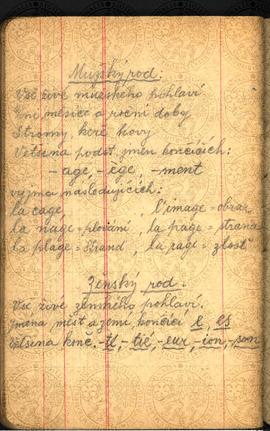 Mužský rod:
Vše živé mužského pohlaví
Dni měsíce a roční doby
Stromy, keře, kovy
Většina podst. jmen končících:
- age, - ège, - ment
vyjma následujících:
la cage, l'image = obraz
la nage = plování, la page = strana
la plage = strand, la rage = zlost
Ženský rod:
Vše živé ženského pohlaví.
Jména měst a zemí končící e, es
Většina konč. -té, -tié, -eur, -ion, -son